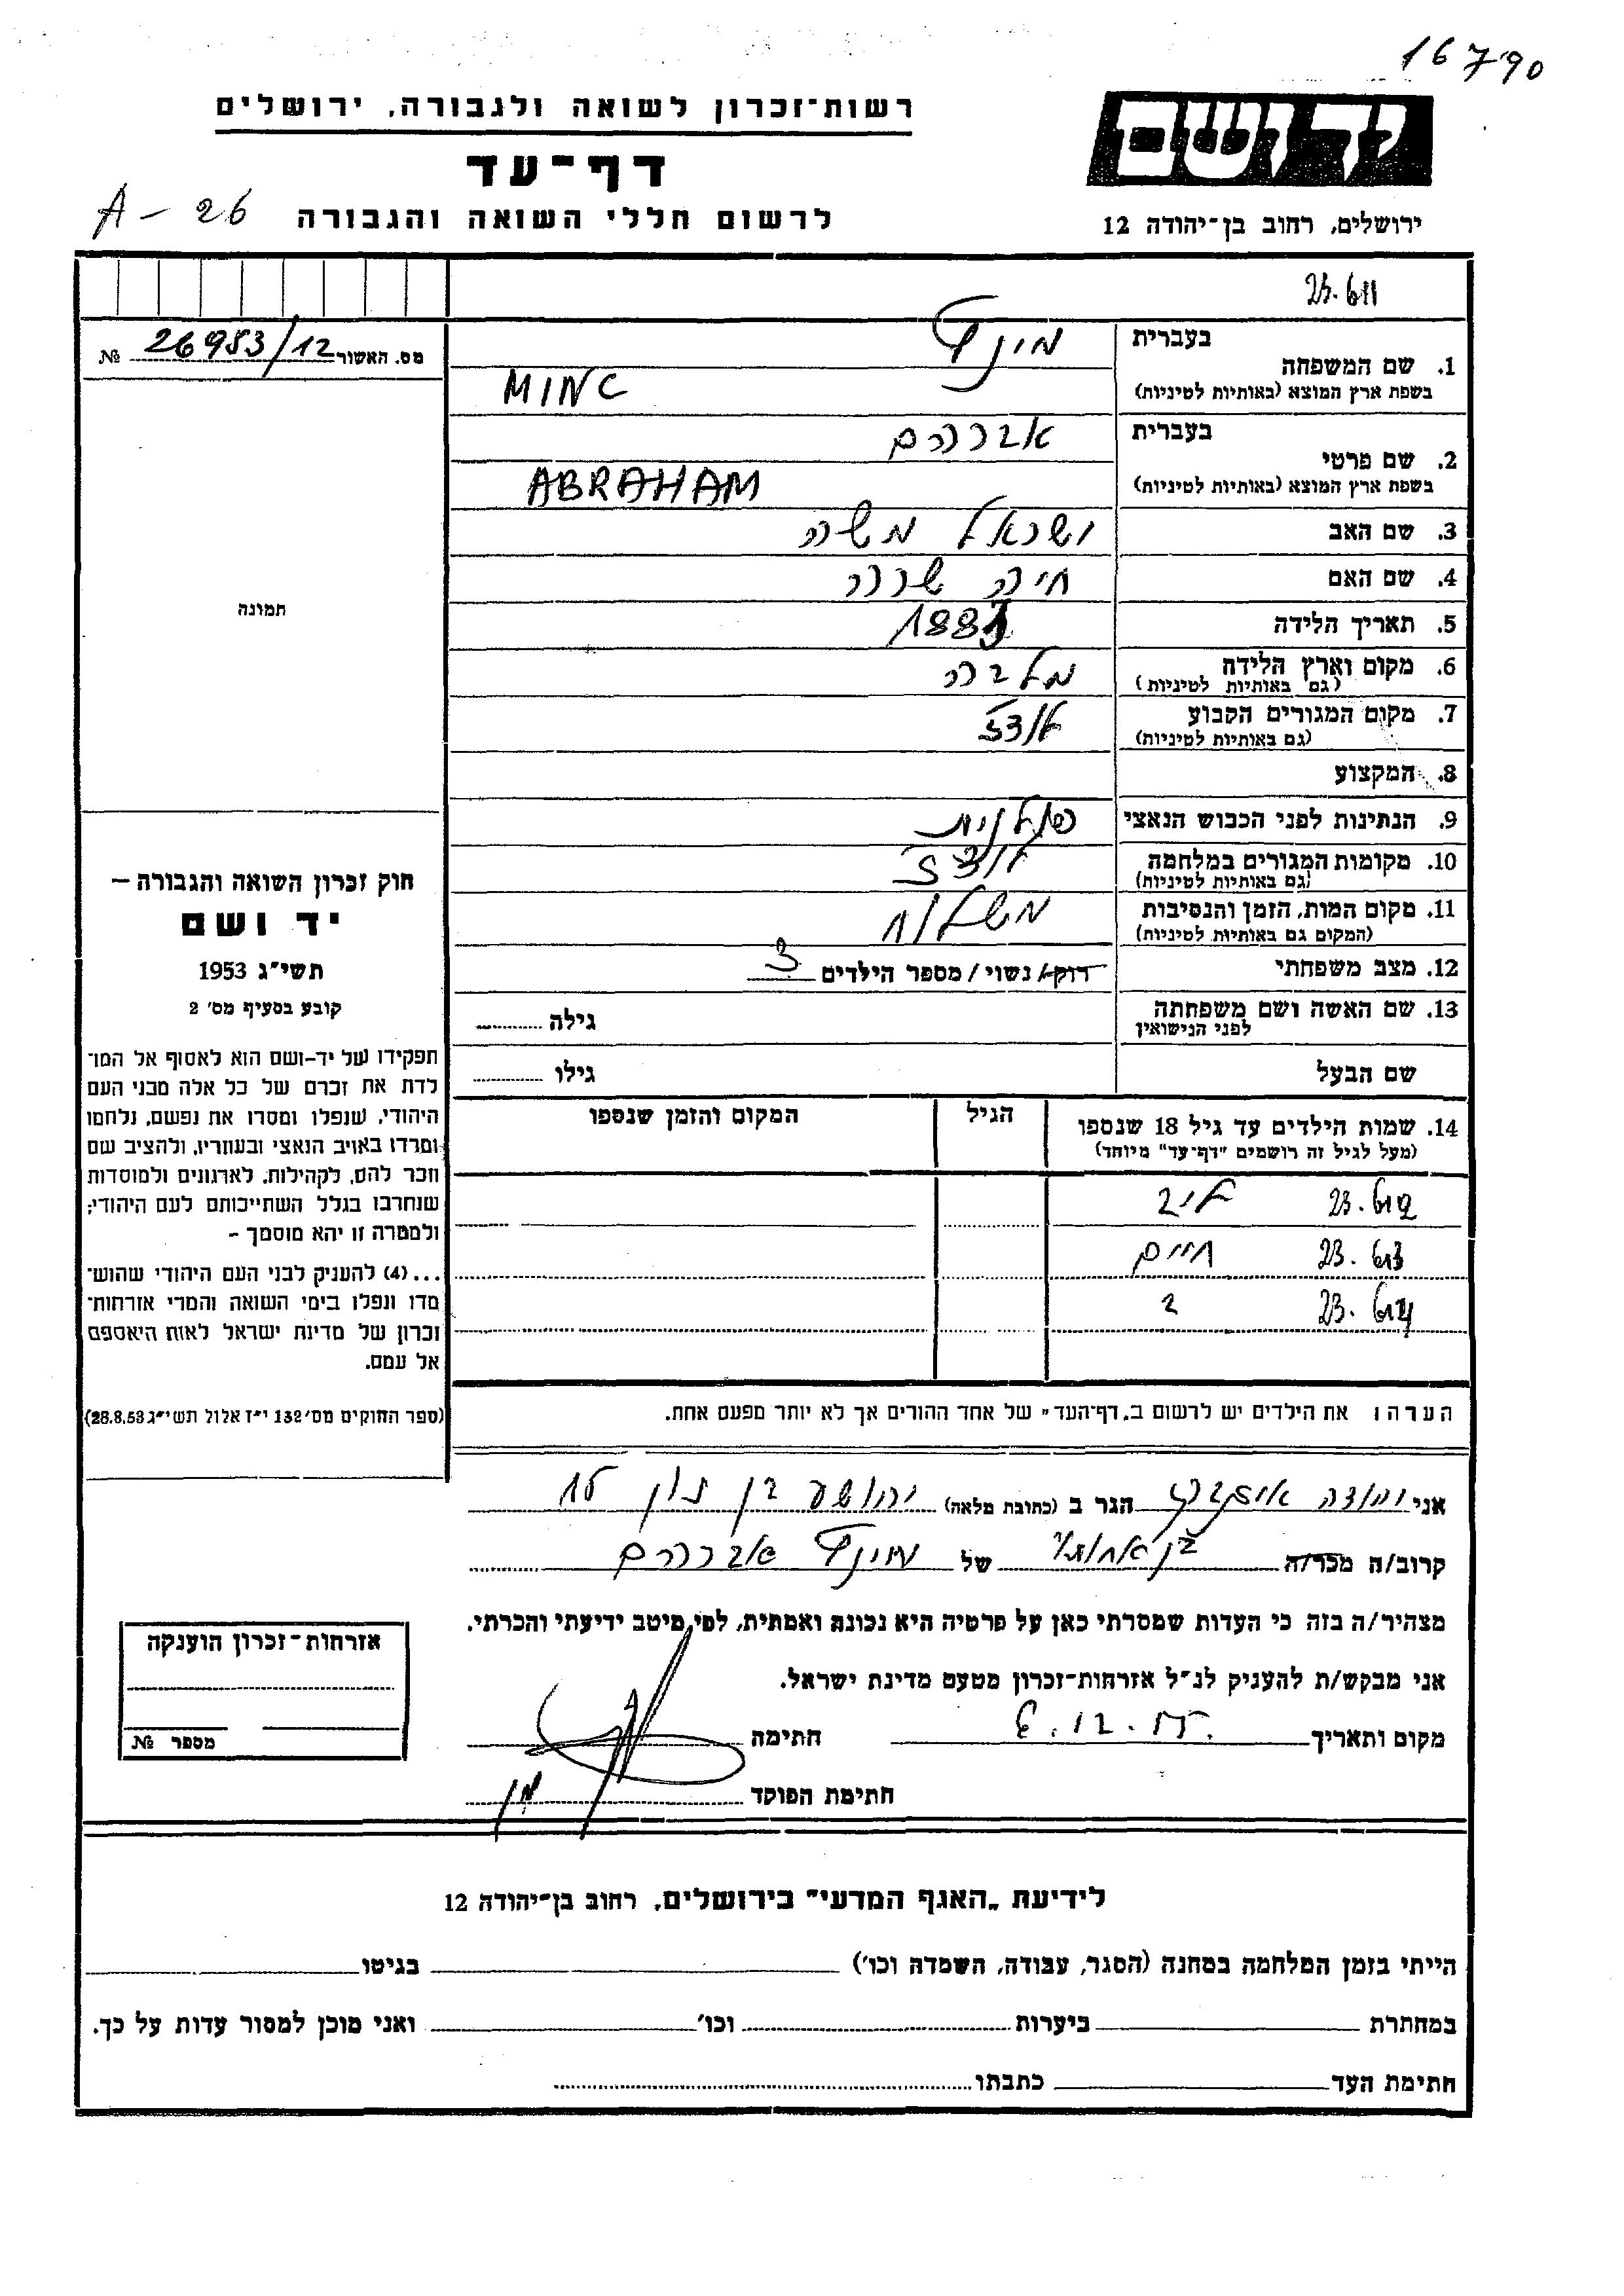 16790
רשות־זכרון לשואה ולגבורה, ירושלים
יד ושם
דף־עד
לרשום חללי השואה והגבורה
A - 26
ירושלים, רחוב בן־יהודה 12
מס. האשור 26953/12 №
בעברית
1. שם המשפחה
מינץ
בשפת ארץ המוצא (באותיות לטיניות)
MINC
בעברית
2. שם פרטי
אברהם
בשפת ארץ המוצא (באותיות לטיניות)
ABRAHAM
3. שם האב ישראל משה
4. שם האם חיה שרה
5. תאריך הלידה
6. מקום וארץ הלידה
(גם באותיות לטיניות)
7. מקום המגורים הקבוע לודז
(גם באותיות לטיניות)
8. המקצוע
9. הנתינות לפני הכבוש הנאצי פולנית
10. מקומות המגורים במלחמה לודז
(גם באותיות לטיניות)
11. מקום המות, הזמן והנסיבות משלוח
(המקום גם באותיות לטיניות)
12. מצב משפחתי רווק/ נשוי / מספר הילדים 3
13. שם האשה ושם משפחתה
לפני הנישואין
גילה
שם הבעל גילו
14. שמות הילדים עד גיל 18 שנספו
(מעל לגיל זה רושמים "דף־עד" מיוחד)
הגיל
המקום והזמן שנספו
לייב
23.613 חיים
הערה: את הילדים יש לרשום ב„דף־העד" של אחד ההורים אך לא יותר מפעם אחת.
תמונה
חוק זכרון השואה והגבורה –
יד ושם
תשי״ג 1953
קובע בסעיף מס׳ 2
תפקידו של יד-ושם הוא לאסוף אל המו־
לדת את זכרם של כל אלה מבני העם
היהודי, שנפלו ומסרו את נפשם, נלחמו
ומרדו באויב הנאצי ובעוזריו, ולהציב שם
וזכר להם, לקהילות, לארגונים ולמוסדות
שנחרבו בגלל השתייכותם לעם היהודי;
ולמטרה זו יהא מוסמך –
...(4) להעניק לבני העם היהודי שהוש־
מדו ונפלו בימי השואה והמרי אזרחות־
זכרון של מדינת ישראל לאות היאספם
אל עמם.
(ספר החוקים מס׳ 132 י״ז אלול תשי״ג 28.8.53)
אני יהודה הגר ב (כתובת מלאה) יהושע בן נון
קרוב/ה מכר/ה בן אחותו של מינץ אברהם
מצהיר/ה בזה כי העדות שמסרתי כאן על פרטיה היא נכונה ואמתית, לפי מיטב ידיעתי והכרתי.
אני מבקש/ת להעניק לנ״ל אזרחות־זכרון מטעם מדינת ישראל.
מקום ותאריך חתימה
חתימת הפוקד
אזרחות־זכרון הוענקה
מספר №
לידיעת „האגף המדעי" בירושלים, רחוב בן־יהודה 12
הייתי בזמן המלחמה במחנה (הסגר, עבודה, השמדה וכו׳) בגיטו
במחתרת ביערות וכו׳ ואני מוכן למסור עדות על כך.
חתימת העד כתבתו